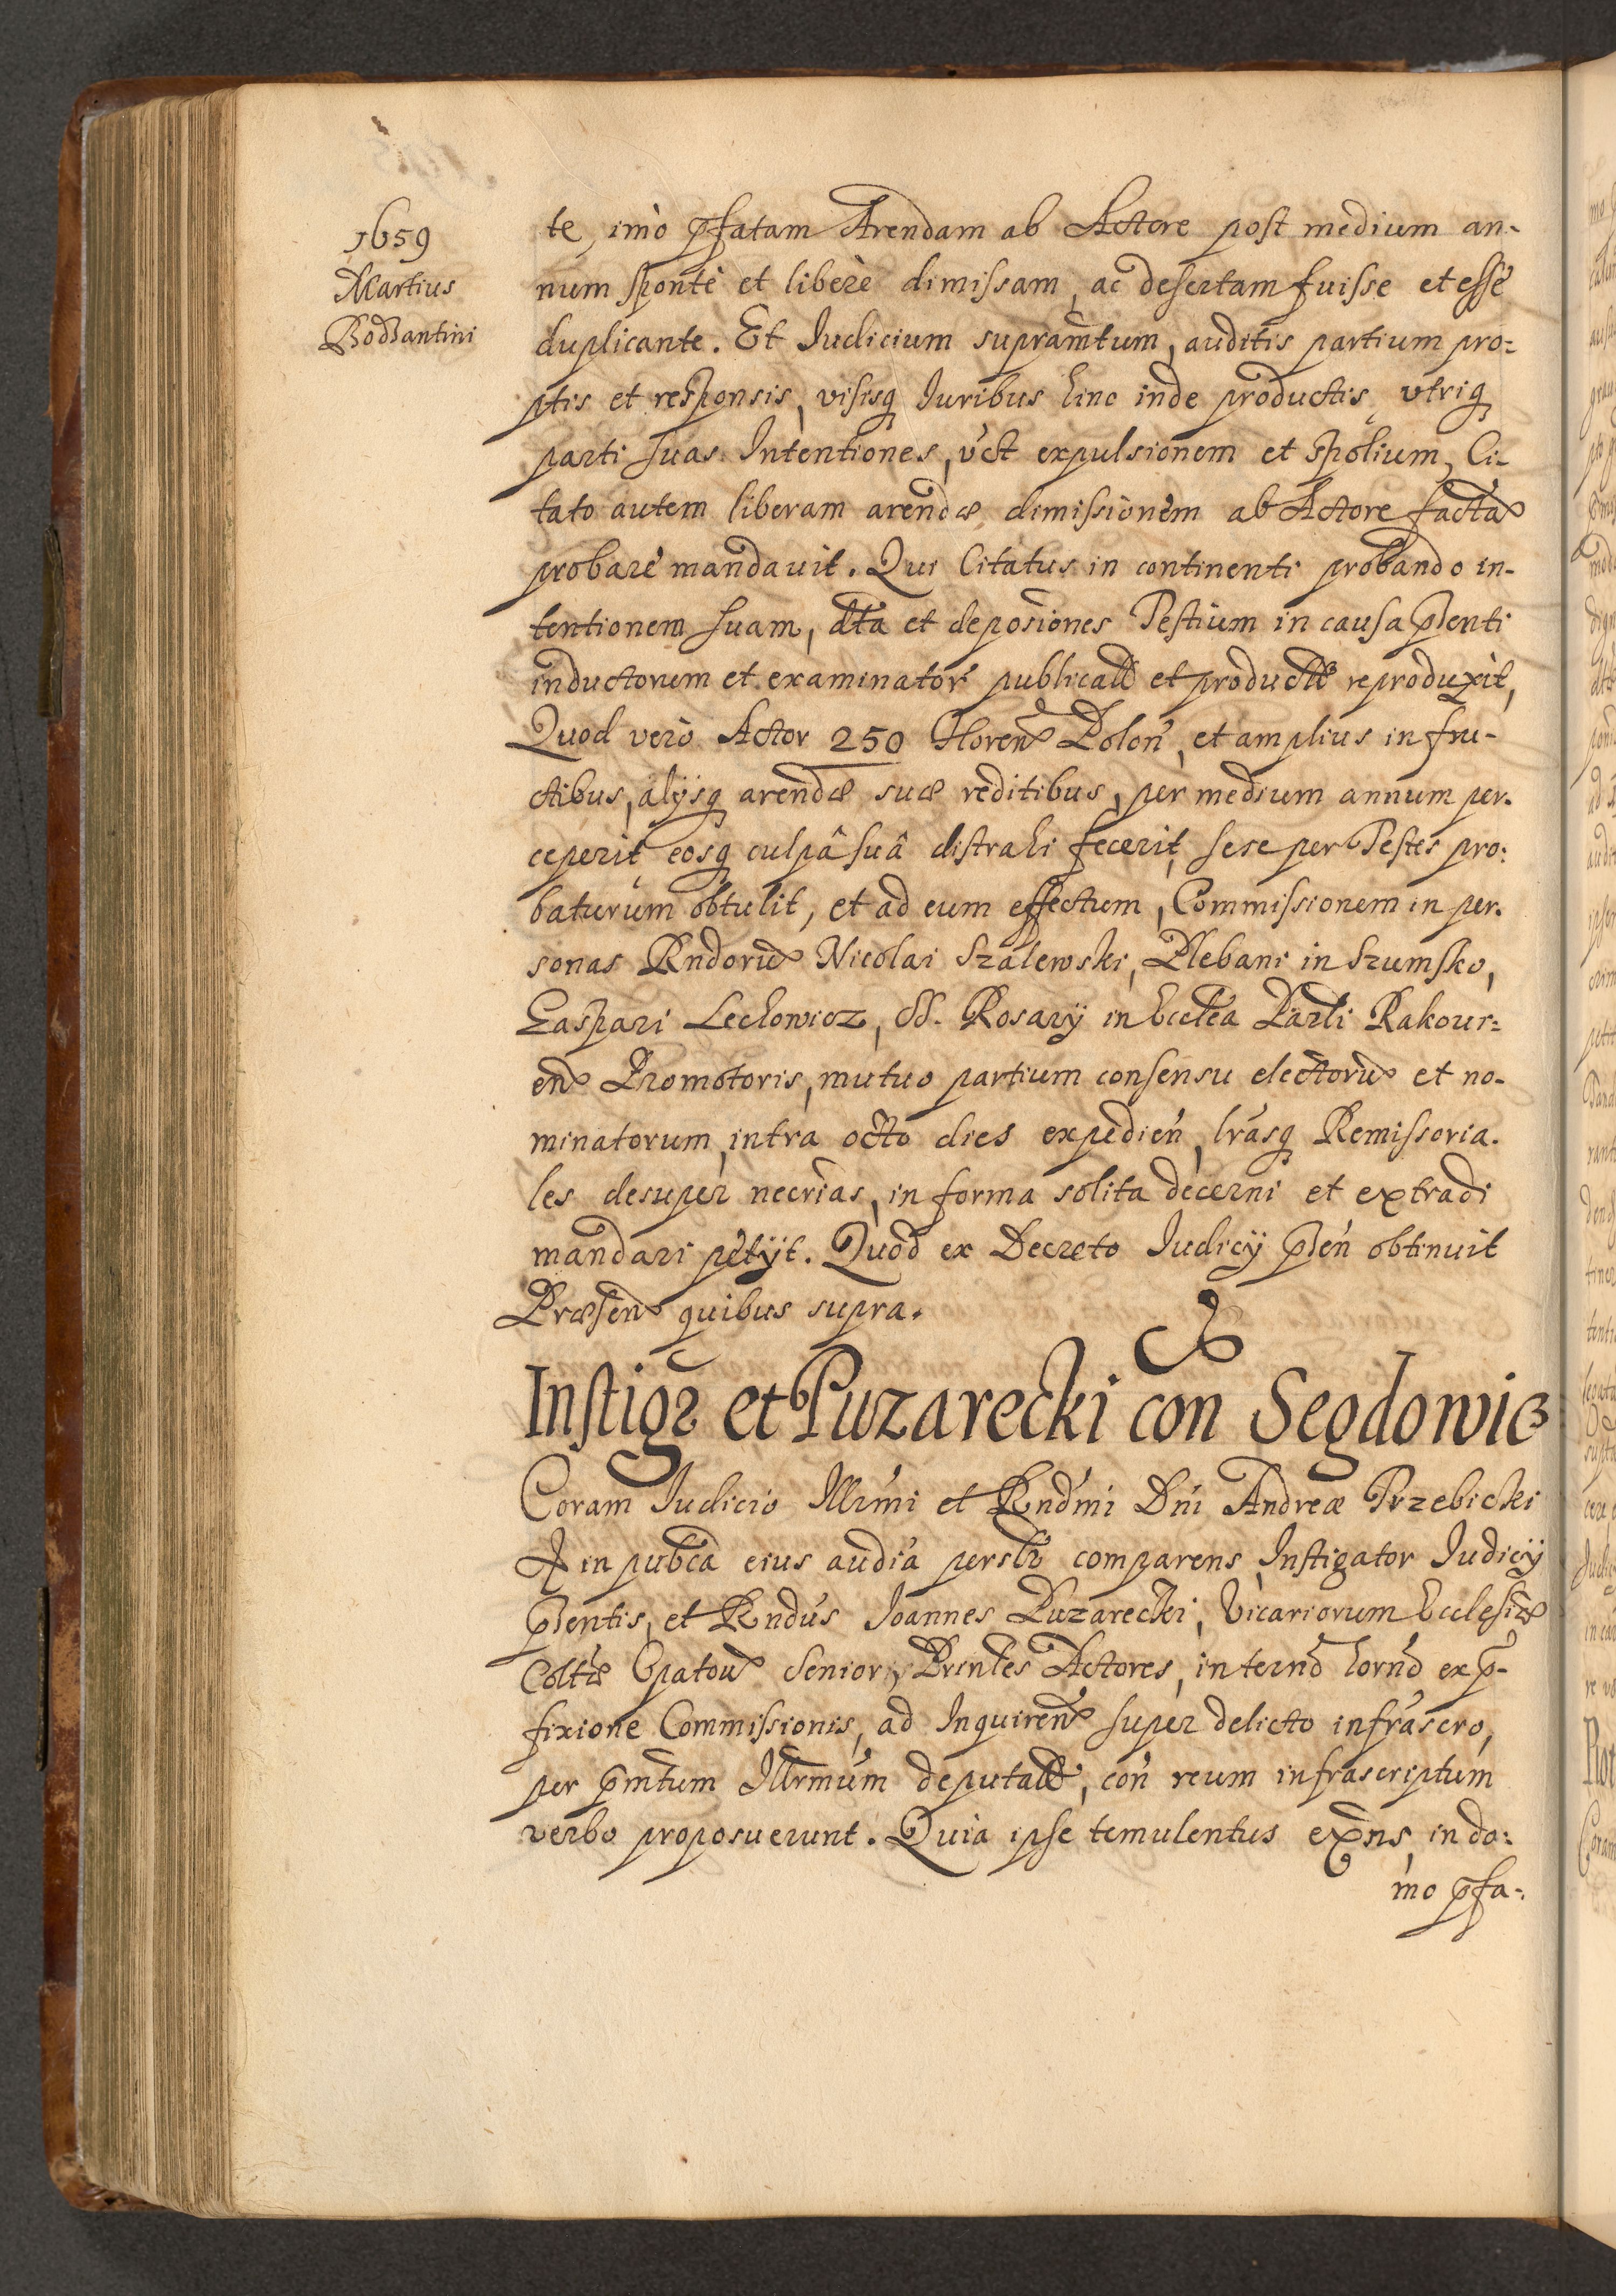 1659
Martius
Bodzantini
te, imò p̄fatam Arendam ab Actore post medium an-
num spontè et liberè dimissam, ac desertam fuisse et esse
duplicante. Et Judicium supram̄tum, auditis partium pro=
ptis et responsis, visisq Iuribus hinc inde productis, vtriq
parti suas Intentiones, vct expulsionem et spolium, Ci-
tato autem liberam arendæ dimissionem ab Actore factā
probare mandauit. Qui Citatus in continenti probando in-
tentionem suam, dta et deposiones Testium in causa p̄senti
inductorum et examinator̄ publicatt et productt reproduxit,
Quod verò Actor 250 Floren Polon, et amplius in fru-
ctibus, alÿsq arendæ suæ reditibus, per medium annum per-
ceperit, eosq culpâ suâ distrahi fecerit, sese per Testes pro=
baturum obtulit, et ad eum effectum, Commissionem in per-
sonas Rndorū Nicolai Szalewski, Plebani in Szumsko,
Gaspari Lechowicz, SS. Rosarÿ in Eccl̄ea Parli Rakouı=
en Promotoris, mutuo partium consensu electorū et no-
minatorum, intra octo dies expedien̄, lrāsq Remissoria-
les desuper necrias, in forma solita decerni et extradi
mandari petÿt. Quod ex Decreto Iudicÿ p̄sen̄ obtinuit
Præsen quibus supra.
Instigr et Puzarecki con Segdowicz
Coram Iudicio Illrm̄i et Rnd̄mi Dn̄i Andreæ Trzebicki
& in pubca eius audia persltr comparens, Instigator Iudicÿ
p̄sentis, et Rndus Ioannes Puzarecki, Vicariorum Ecclesiæ
Coltæ Opatou Senior, Prin̄les Actores, in tern̄o horn̄o ex p̄-
fixione Commissionis, ad Inquiren super delicto infrascro,
per p̄mtum Illrmum deputatt, con̄ reum infrascriptum
verbo proposuerunt. Quia ipse temulentus exns, in do=
mo p̄fa=